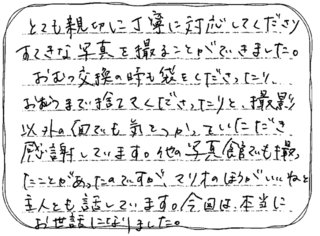 とても親切に丁寧に対応してくださり
すてきな写真を撮ることができました。
おむつ交換の時も袋をくださったり、
おむつまで捨ててくださったりと、撮影
以外の面でも気をつかっていただき
感謝しています。他の写真館でも撮っ
たことがあったのですが、マリオのほうがいいねと
主人とも話しています。今回は本当に
お世話になりました。